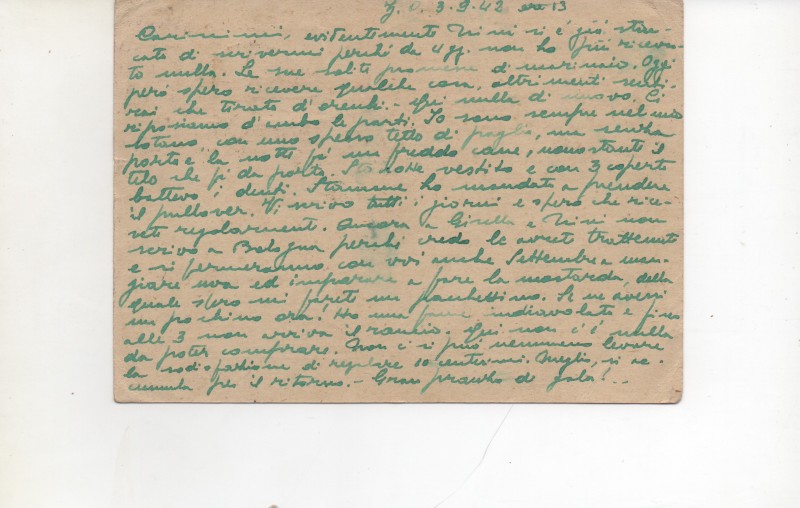 3.9.42 ore 13
Carissimi, evidentemente Nini si è già stan-
cata di scrivermi perché da 4 gg. non ho più ricevu-
to nulla. Le sue solite promesse di marinaio. Oggi
però spero ricevere qualche cosa, altrimenti senti-
rai che tirata d'orecchi. - Qui nulla di nuovo. Ci
riposiamo d'ambo le parti. Io sono sempre nel mio
con uno spesso tetto di paglia, ma senza
porta e la notte fa un freddo cane, nonostante il
telo che fa da porta. Stanotte vestito e con 3 coperte
battevo i denti. Stamane ho mandato a prendere
il pullover. Vi scrivo tutti i giorni e spero che rice-
vete regolarmente. Ancora a Gisella e Nini non
scrivo a Bologna perché credo le avrete trattenute
e si fermeranno con voi anche Settembre a man-
giare uva ed imparare a fare la mostarda, della
quale spero mi farete un pacchettino. Se ne avessi
un pochino ora! Ho una fame indiavolata e fino
alle 3 non arriva il rancio. Qui non c'è nulla
da poter comprare. Non ci si può nemmeno levare
la sodisfazione di regalare 10 centesimi. Meglio, si ac-
cumula per il ritorno. - Gran pranzo di gala! ..